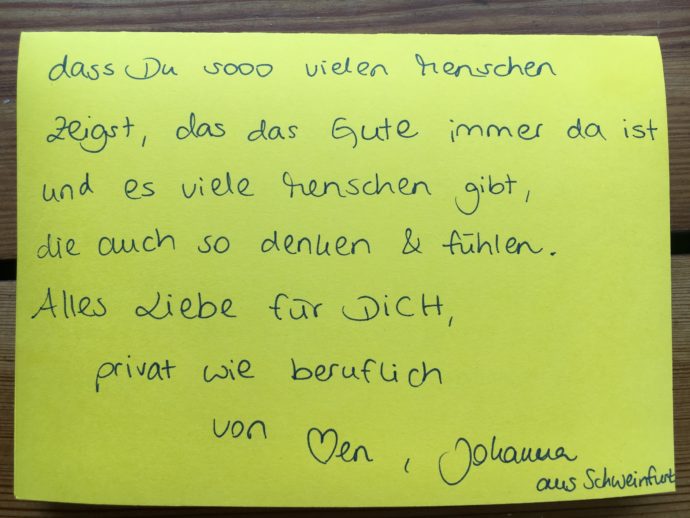 dass Du sooo vielen Menschen
zeigst, das das Gute immer da ist
und es viele Menschen gibt,
die auch so denken & fühlen.
Alles Liebe für DICH,
privat wie beruflich
von ♡en, Johanna
aus Schweinfurt